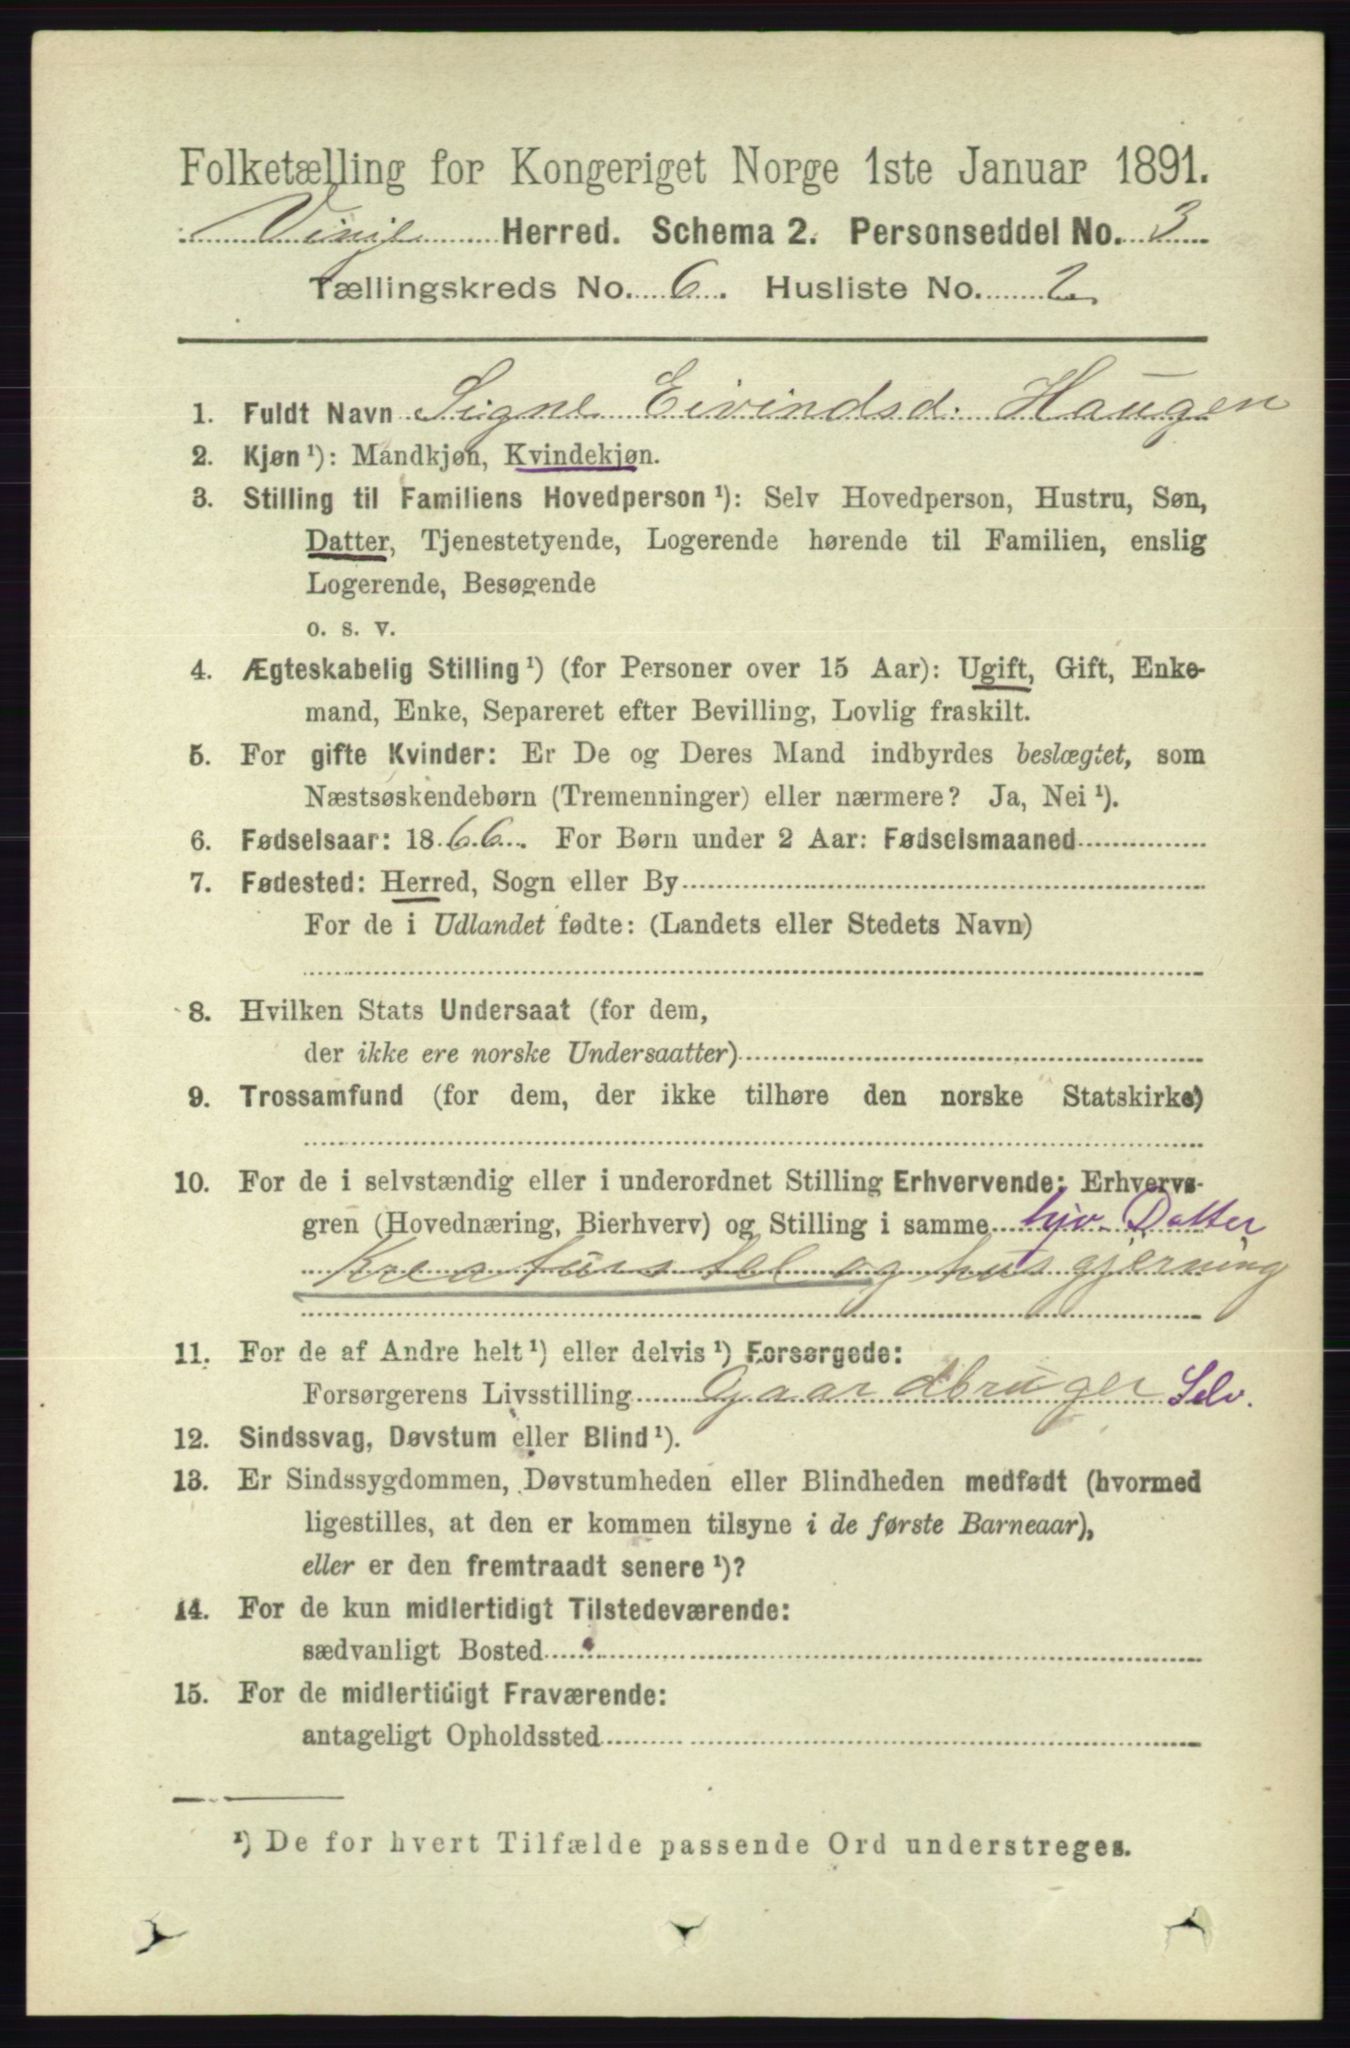 Folketælling for Kongeriget Norge 1ste Januar 1891.
Vinje Herred. Schema 2. Personseddel No. 3
Tællingskreds No. 6. Husliste No. 2
1. Fuldt Navn Signe Eivindsd. Haugen
2. Kjøn ¹): Mandkjøn, Kvindekjøn.
3. Stilling til Familiens Hovedperson ¹): Selv Hovedperson, Hustru, Søn,
Datter, Tjenestetyende, Logerende hørende til Familien, enslig
Logerende, Besøgende
o. s. v.
4. Ægteskabelig Stilling ¹) (for Personer over 15 Aar): Ugift, Gift, Enke-
mand, Enke, Separeret efter Bevilling, Lovlig fraskilt.
5. For gifte Kvinder: Er De og Deres Mand indbyrdes beslægtet, som
Næstsøskendebørn (Tremenninger) eller nærmere? Ja, Nei ¹).
6. Fødselsaar: 1866. For Børn under 2 Aar: Fødselsmaaned
7. Fødested: Herred, Sogn eller By
For de i Udlandet fødte: (Landets eller Stedets Navn)
8. Hvilken Stats Undersaat (for dem,
der ikke ere norske Undersaatter)
9. Trossamfund (for dem, der ikke tilhøre den norske Statskirke)
10. For de i selvstændig eller i underordnet Stilling Erhvervende: Erhvervs-
gren (Hovednæring, Bierhverv) og Stilling i samme hjv. Datter
Kreaturstel og husgjerning
11. For de af Andre helt ¹) eller delvis ¹) Forsørgede:
Forsørgerens Livsstilling Gaardbruger Selv.
12. Sindssvag, Døvstum eller Blind ¹).
13. Er Sindssygdommen, Døvstumheden eller Blindheden medfødt (hvormed
ligestilles, at den er kommen tilsyne i de første Barneaar),
eller er den fremtraadt senere ¹)?
14. For de kun midlertidigt Tilstedeværende:
sædvanligt Bosted
15. For de midlertidigt Fraværende:
antageligt Opholdssted
¹) De for hvert Tilfælde passende Ord understreges.